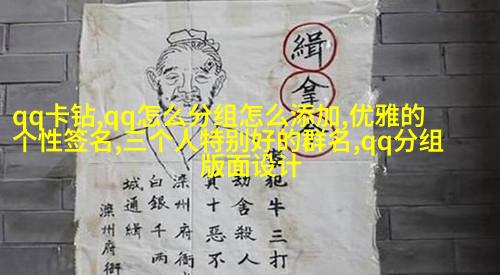 qq卡钻,qq怎么分组怎么添加,优雅的
个性签名,三个人特别好的群名,qq分组
版面设计
緝拿
犯牛三打
劫舍殺人
其十惡不
滦州府衙
白銀千两
城通緝
滦州府衙